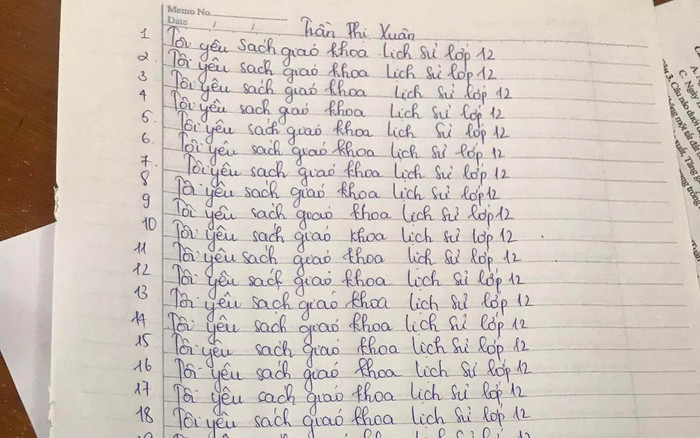 Memo No.
Date / /
Trần Thi Xuân
1 Tôi yêu sach giaó khoa Lịch sử lớp 12
2. Tôi yêu sach giaó khoa Lịch sử lớp 12
3 Tôi yêu sach giaó khoa Lịch sử lớp 12
4 Tôi yêu sach giaó khoa Lịch sử lớp 12
5. Tôi yêu sach giaó khoa Lịch sử lớp 12
6. Tôi yêu sach giaó khoa Lịch sử lớp 12
7. Tôi yêu sach giaó khoa Lịch sử lớp 12
8 Tôi yêu sach giaó khoa Lịch sử lớp 12
9 Tôi yêu sach giaó khoa Lịch sử lớp 12
10 Tôi yêu sach giaó khoa Lịch sử lớp 12.
11 Tôi yêu sach giaó khoa Lịch sử lớp 12
12 Tôi yêu sách giaó khoa Lịch sử lớp 12
13 Tôi yêu sach giaó khoa Lịch sử lớp 12
14 Tôi yêu sach giaó khoa Lịch sử lớp 12
15 Tôi yêu sach giaó khoa Lịch sử lớp 12
16 Tôi yêu sach giaó khoa Lịch sử lớp 12
17 Tôi yêu cach giaó khoa Lịch sử lớp 12
18 Tôi yêu sach giaó khoa Lịch sử lớp 12
C. Ngày
3. Câu nào dưới